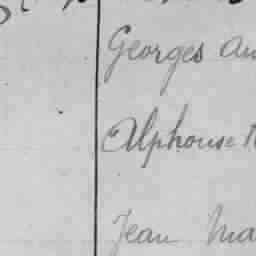 Georges
Alphonse
Jean Ma